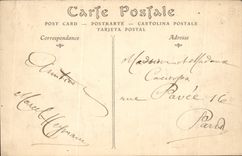 Carte Postale
POST CARD — POSTKARTE — CARTOLINA POSTALE
TARJETA POSTAL
Correspondance
Adresse
Monsieur et Madame
rue Pavée 16
Paris
Amitiés
Marcel